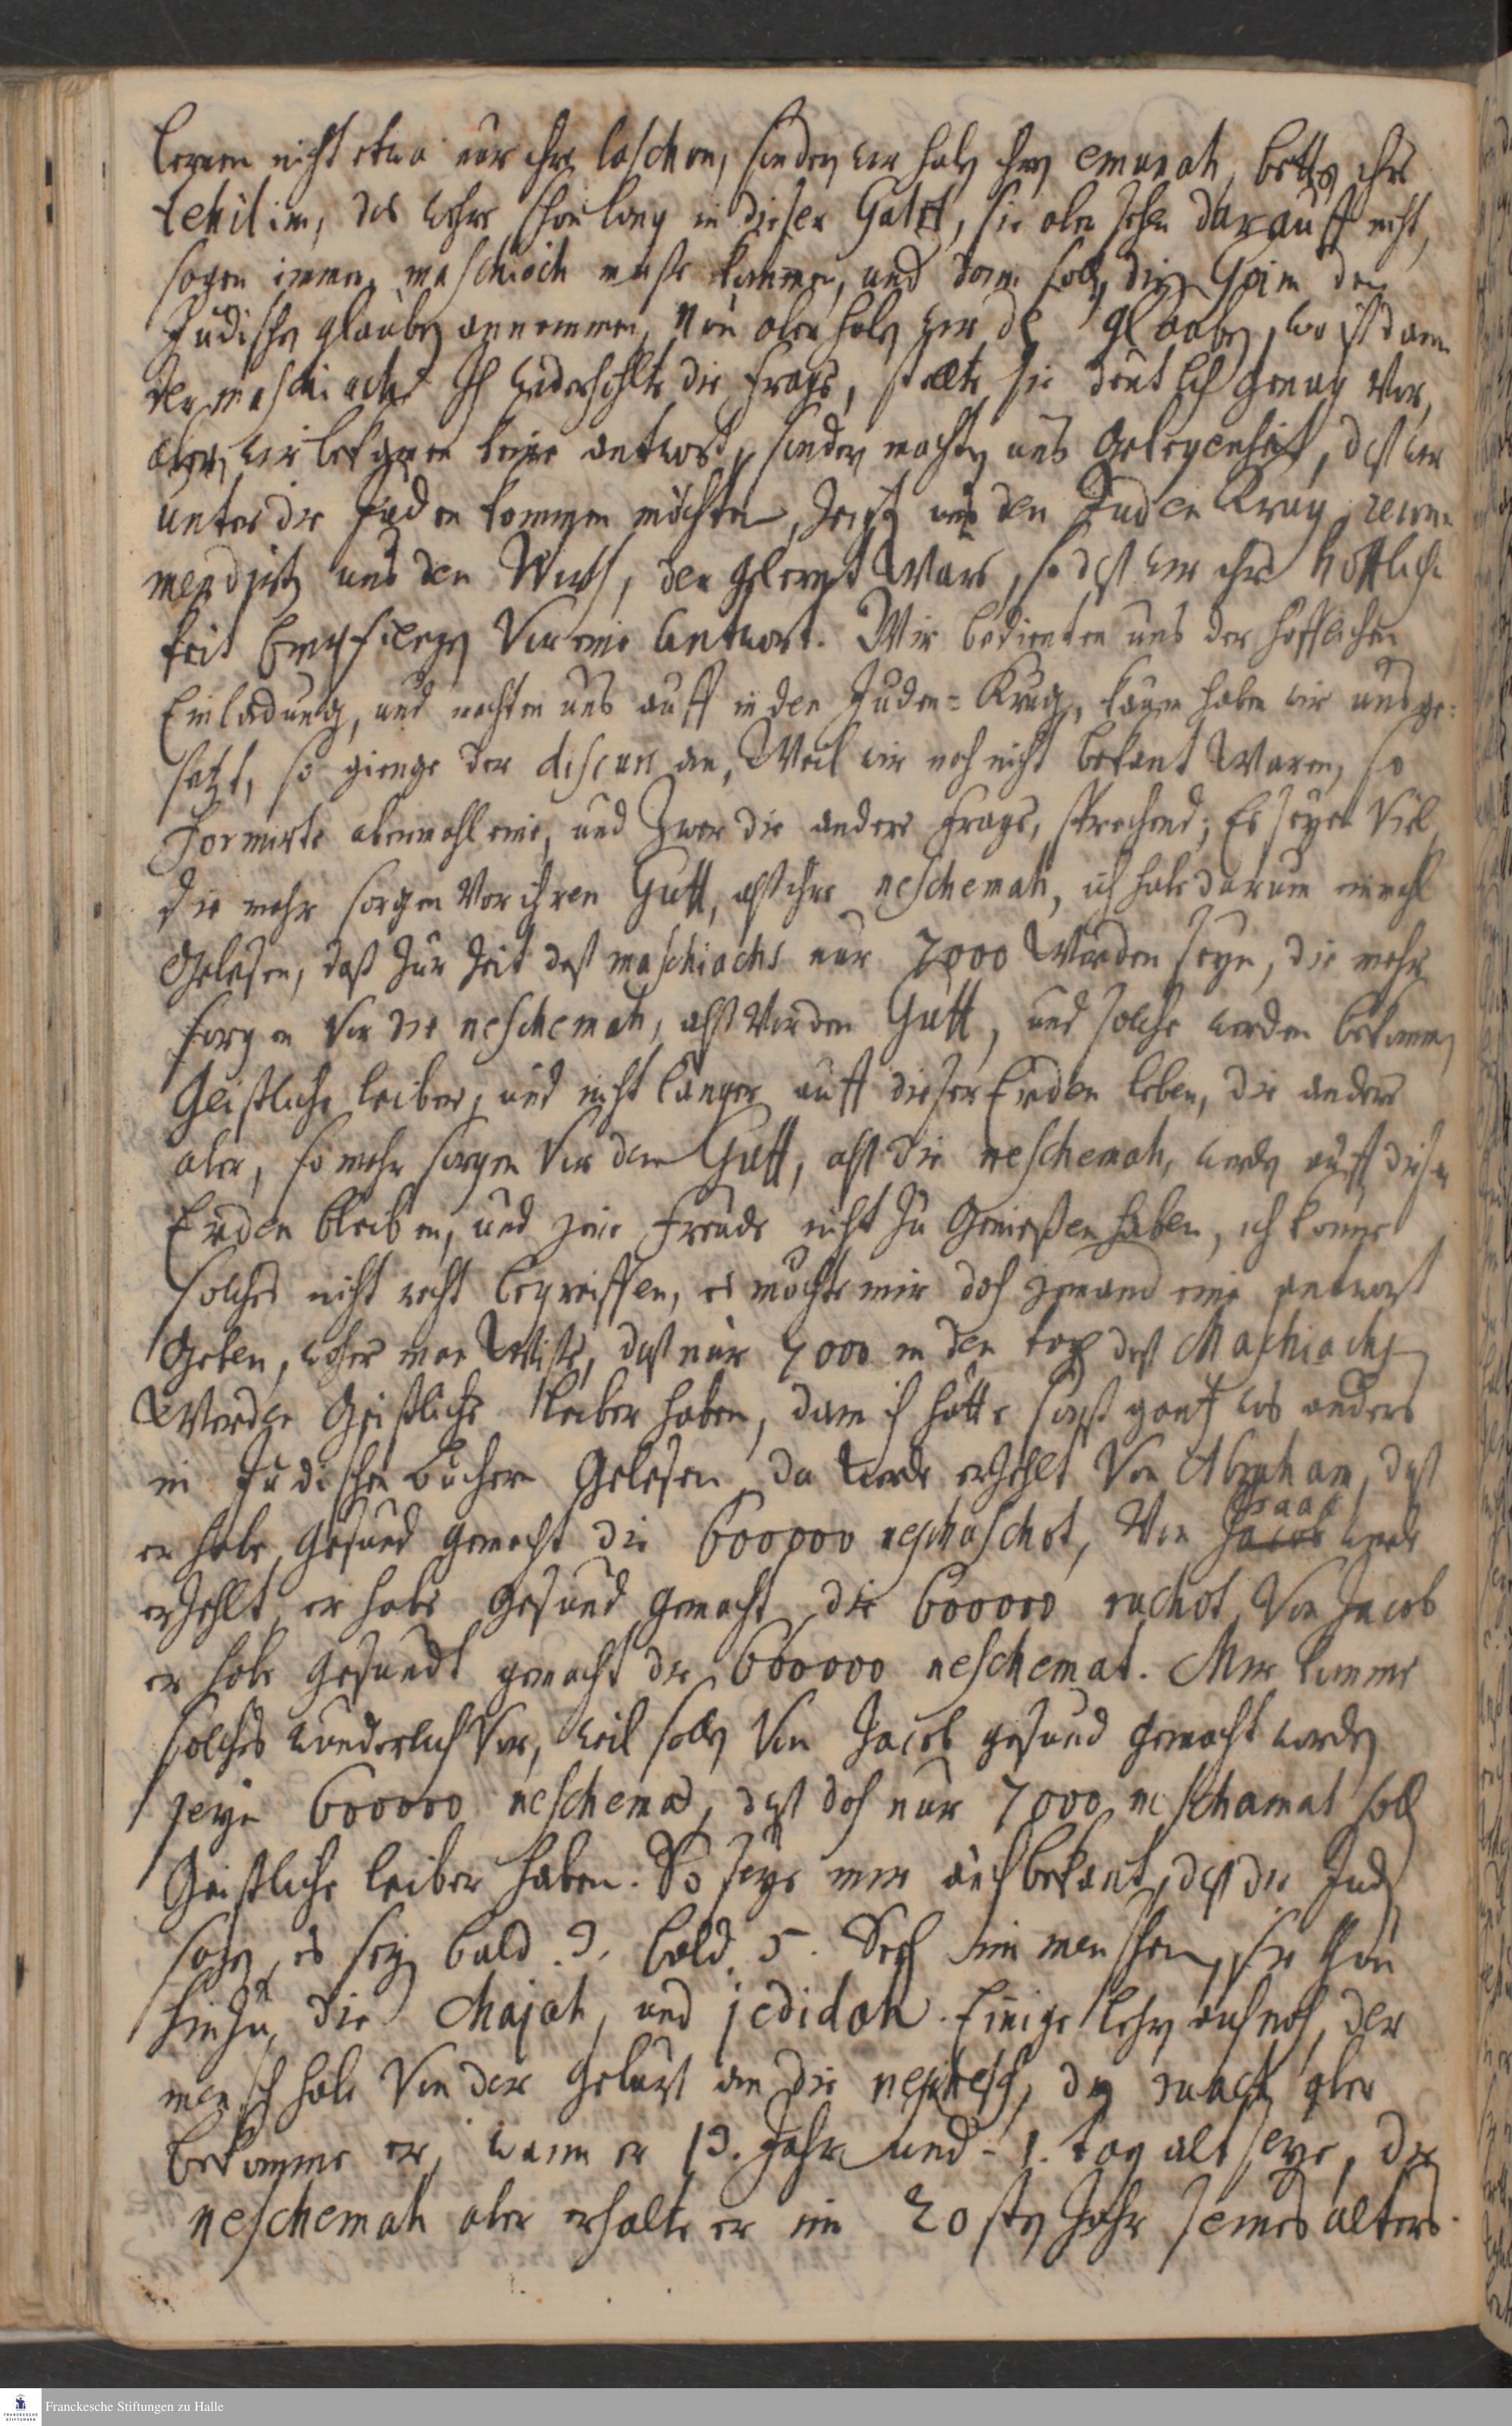 lernen nicht etwa nur ihre laschon, sondern wir haben ihren emunah, betten ihre
tehilim, das wehre schon lang in dieser Galut, sie aber sehen darauff nicht,
sagen immer, maschiach muste kommen, und dann sollen die Goim den
Jüdischen glauben annemmen, Nun aber haben wir den glauben, wo ist dann
der maschiach? Ich widerhohlte die Frage, stellte sie deutlich genug vor,
aber wir bekamen keine antwort, sondern machten uns Gelegenheit, dass wir
unter die Juden kommen möchten, zeigten uns den Juden Krug, recom-
mendirten uns den Wirth, der gelernt ware, so dass wir ihre höfflich-
keit Empfiengen vor eine Antwort. Wir bedienten uns der höfflichen
Einladung, und machten uns auff in den Juden-Krug, kaum haben wir uns ge-
setzt, so gienge der discurs an, Weil wir noch nicht bekant waren, so
formirte abermahl eine, und Zwar die andere Frage, sprechend; Es seyen viel
die mehr sorgen vor ihren Guff, alss ihre neschemah, ich habe darum einmahl
Gelesen, dass zur Zeit dess maschiachs nur 7000 werden seyn, die mehr
sorgen vor die neschemah, alss vor den Guff, und solche werden bekommen
Geistliche leiber, und nicht länger auff dieser Erden leben, die andere
aber, so mehr sorgen vor den Guff, alss die neschemah, werden auff dieser
Erden bleiben, und jene Freude nicht zu Geniessen haben, ich könne
solches nicht recht begreiffen, es möchte mir doch jemand eine antwort
Geben, woher man wisse, dass nur 7000 in den tagen dess Maschiachs
werden Geistliche leiber haben, dann ich hätte sonst gantz was anders
in Jüdischen büchern Gelesen, da werde erzehlt von Abraham, dass
er habe Gesund gemacht die 600000 nephaschot, Von Isaac werde
erzehlt, er habe Gesund gemacht die 600000 ruchot, Von Jacob
er habe Gesundt gemacht die 600000 neschemat. Mir komme
solches wunderlich vor, weil sollen von Jacob gesund gemacht worden
seyn 600000 neschemad, dass doch nur 7000 neschamat soll
Geistliche leiber haben. So seye mir auch bekant, dass die Juden
sagen, es seyen bald 3. bald 5. Seelen im menschen, sie thun
hinzu, die Chajah, und jedidah. Einige lehren auch noch, der
mensch habe von der Geburt an die nephesch, den ruach aber
bekomme er, wann er 13. Jahr und 1. tag alt seye, die
neschemah aber erhalte er im 20sten Jahr seines alters.
Franckesche Stiftungen zu Halle